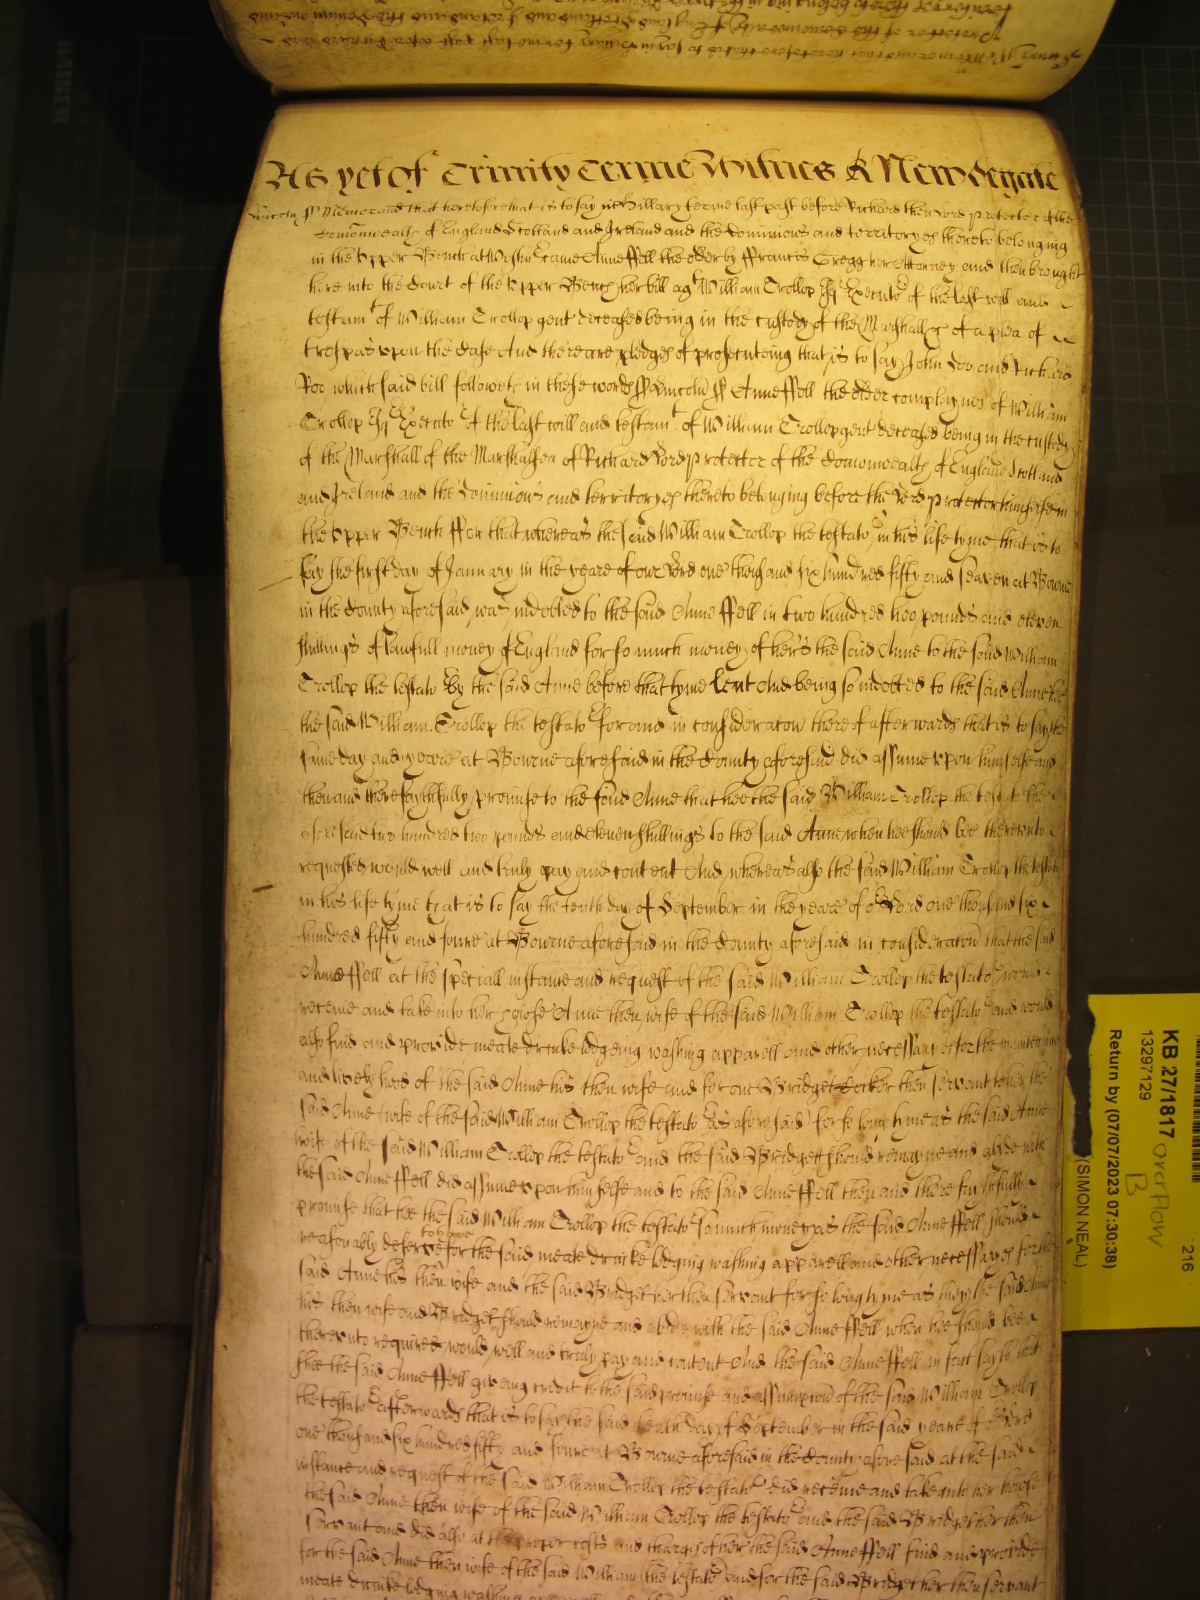 As yet of Trinity Terme Witnes R Newdegate
Lincoln ss Memorand that heretofore that is to say in Hillary terme last past before Richard then Lord protector of the
Comonwealth of England Scotland and Ireland and the Dominions and territoryes thereto belonging
in the Upper Bench at Westm Came Anne ffell the elder by ffrancis Gregg her Attorney and then brought
here into the Court of the Upper Bench her bill agt William Trollop Esq Executor of the last will and
testamt of William Trollop gent deceased being in the custody of the Marshall &c of a plea of
trespas upon the Case And there are pledges of prosecuteing that is to say John Doo and Richard
Roo which said bill followeth in these words ss Lincoln ss Anne ffell the elder complaynes of William
Trollop Esq Executor of the last will and testamt of William Trollop gent deceased being in the custody
of the Marshall of the Marshalsea of Richard Lord protector of the Comonwealth of England Scotland
and Ireland and the Dominions and territoryes thereto belonging before the Lord protector himselfe in
the Upper Bench ffor that whereas the said William Trollop the testator in his life tyme that is to
say the first day of January in the yeare of our Lord one thousand six hundred fifty and seaven at Bourne
in the County aforesaid was indebted to the said Anne ffell in two hundred two pounds and eleven
shillings of lawfull money of England for so much money of hers the said Anne to the said William
Trollop the testator by the said Anne before that tyme lent And being so indebted to the said Anne hee
the said William Trollop the testator for and in consideracon thereof afterwards that is to say the
same day and yeare at Bourne aforesaid in the County aforesaid did assume upon himselfe and
then and there faythfully promise to the said Anne that hee the said William Trollop the testator the
aforesaid two hundred two pounds and eleven shillings to the said Anne when hee should be thereunto
requested would well and truly pay and content And whereas also the said William Trollop the testator
in his life tyme that is to say the tenth day of September in the yeare of or Lord one thousand six
hundred fifty and foure at Bourne aforesaid in the County aforesaid in consideracon that the said
Anne ffell at the speciall instance and request of the said William Trollop the testator would
receive and take into her house Anne then wife of the said William Trollop the testator and would
also find and provide meate drinke lodgeing washing apparell and other necessaryes for the maintenance
and lively hood of the said Anne his then wife and for one Bridget Becker then servant to her the
said Anne wife of the said William Trollop the testator as aforesaid for so long tyme as the said Anne
wife of the said William Trollop the testator and the said Bridgett should remayne and abide with
the said Anne ffell did assume upon himselfe and to the said Anne ffell then and there faythfully
promise that hee the said William Trollop the testator so much money as the said Anne ffell should
reasonably deserve to have for the said meate drinke lodging washing apparell and other necessaryes for the
said Anne his then wife and the said Bridget her then servant for so long tyme as they the said Anne
his then wife and Bridget should remayne and abide with the said Anne ffell when hee should bee
thereunto required would well and truly pay and content And the said Anne ffell in fact sayth that
shee the said Anne ffell giveing credit to the said promise and assumpcon of the said William Trollop
the testator afterwards that is to say the said tenth day of September in the said yeare of or Lord
one thousand six hundred fifty and foure at Bourne aforesaid in the County aforesaid at the said
instance and request of the said William Trollop the testator did receive and take into her house
the said Anne then wife of the said William Trollop the testator and the said Bridget her then
servant and did also at the proper costs and charges of her the said Anne ffell find and provide
for the said Anne then wife of the said William the testator and for the said Bridget her then servant
meate drinke lodging washing
KB 27/1817 overflow
13297129 B
216
Return by (07/07/2023 07:30:38)
(SIMON NEAL)